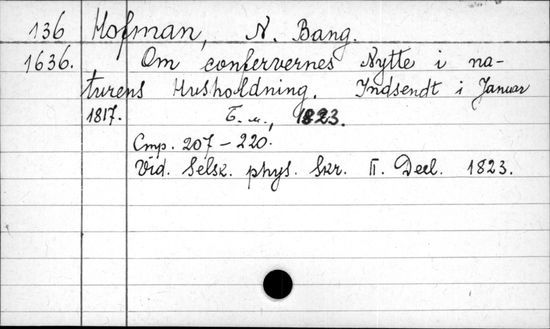 136 Hofman, N. Bang.
1636. Om confervernes Nytte i na-
turens Husholdning. Indsendt i Januar
1817. Б. м., 1823.
Стр. 207-220.
Vid. Selsk. phys. Skr. II. Deel. 1823.